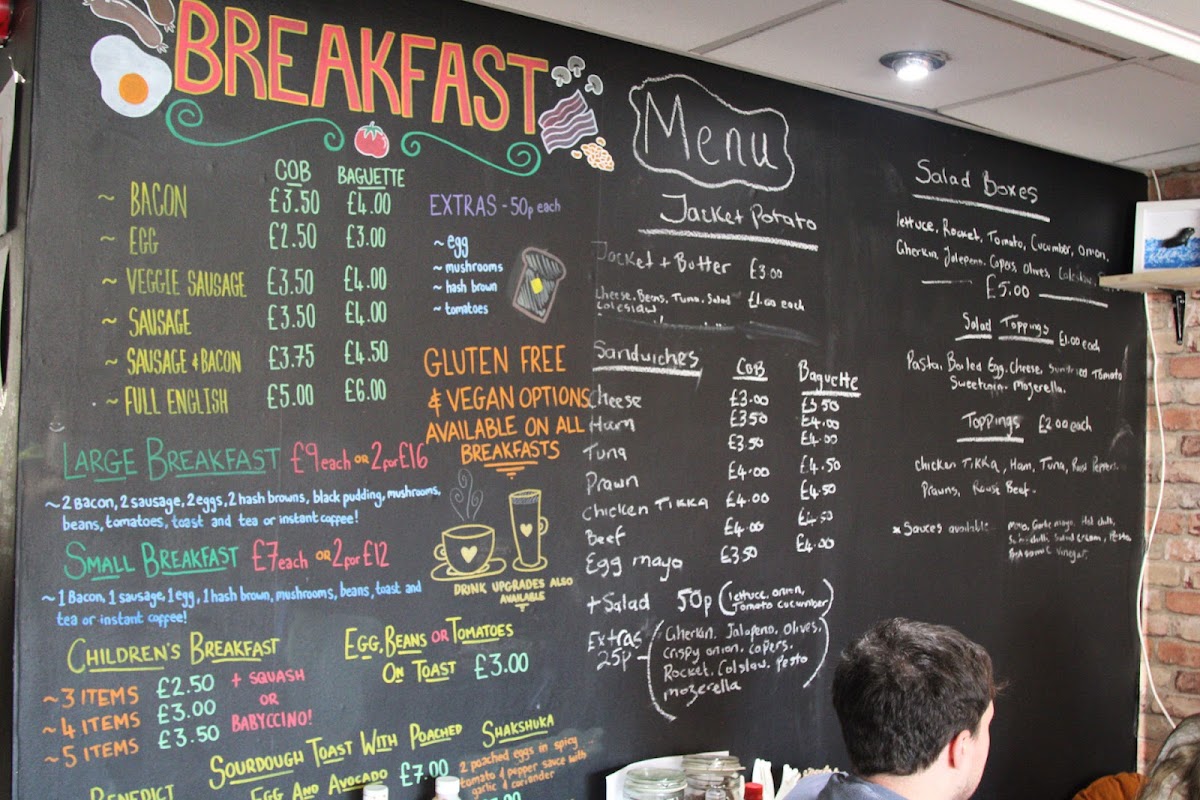 BREAKFAST
COB BAGUETTE
~ BACON £3.50 £4.00
~ EGG £2.50 £3.00
~ VEGGIE SAUSAGE £3.50 £4.00
~ SAUSAGE £3.50 £4.00
~ SAUSAGE & BACON £3.75 £4.50
~ FULL ENGLISH £5.00 £6.00
EXTRAS - 50p each
~ egg
~ mushrooms
~ hash brown
~ tomatoes
GLUTEN FREE
& VEGAN OPTIONS
AVAILABLE ON ALL
BREAKFASTS
LARGE BREAKFAST £9 each OR 2 for £16
~ 2 Bacon, 2 sausage, 2 eggs, 2 hash browns, black pudding, mushrooms,
beans, tomatoes, toast and tea or instant coffee!
SMALL BREAKFAST £7 each OR 2 for £12
~ 1 Bacon, 1 sausage, 1 egg, 1 hash brown, mushrooms, beans, toast and
tea or instant coffee!
DRINK UPGRADES ALSO
AVAILABLE
CHILDREN'S BREAKFAST
~ 3 ITEMS £2.50
~ 4 ITEMS £3.00
~ 5 ITEMS £3.50
+ SQUASH
OR
BABYCCINO!
EGG, BEANS OR TOMATOES
ON TOAST £3.00
SOURDOUGH TOAST WITH POACHED
EGG AND AVOCADO £7.00
SHAKSHUKA
2 poached eggs in spicy
tomato & pepper sauce with
garlic & coriander
BENEDICT
Menu
Jacket Potato
Jacket + Butter £3.00
Cheese, Beans, Tuna, Salad £1.00 each
Coleslaw
Sandwiches COB Baguette
Cheese £3.00 £3.50
Ham £3.50 £4.00
Tuna £3.50 £4.00
Prawn £4.00 £4.50
Chicken Tikka £4.00 £4.50
Beef £4.00 £4.50
Egg mayo £3.50 £4.00
+ Salad 50p (lettuce, onion,
Tomato cucumber)
Extras
25p -
(Gherkin, Jalapeno, Olives,
Crispy onion, Capers,
Rocket, Colslaw, Pesto
mozerella)
Salad Boxes
lettuce, Rocket, Tomato, Cucumber, Onion,
Gherkin, Jalapeno, Capers, Olives,
£5.00
Salad Toppings £1.00 each
Pasta, Boiled Egg, Cheese, Sundried Tomato
Sweetcorn, Mozerella.
Toppings £2.00 each
Chicken Tikka, Ham, Tuna, Roast Peppers
Prawns, Roast Beef.
* Sauces available
Mayo, Garlic mayo, Hot chilli,
Sweet chilli, Salad cream, Pesto
Balsamic Vinegar.